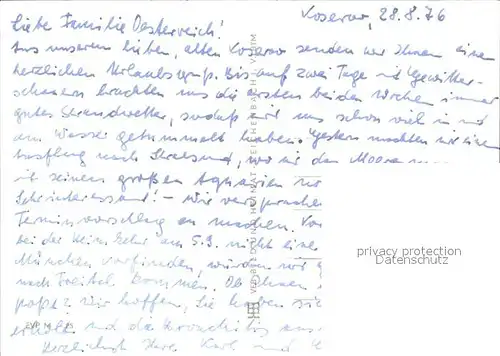 Koserow, 28.8.76
Liebe Familie Oesterreich!
Aus unserem lieben, alten Koserow senden wir Ihnen einen
herzlichen Urlaubsgruß. Bis auf zwei Tage mit Gewitter-
schauern brachten uns die ersten beiden Wochen immer
gutes Strandwetter, sodaß wir uns schon viel in und
am Wasser getummelt haben. Gestern machten wir einen
Ausflug nach Stralsund, wo wir das Meeres
mit seinen großen Aquarien
Sehr interessant! - Wir versprachen
Terminvorschlag zu machen.
bei der Heimkehr am 5.9. nicht eine
München vorfinden, würden wir
nach Freital kommen. Ob Ihnen
paßt? Wir hoffen, Sie haben sich
erholt und die Bronchitis aus
Herzlichst Ihre Karl und
privacy protection
Datenschutz